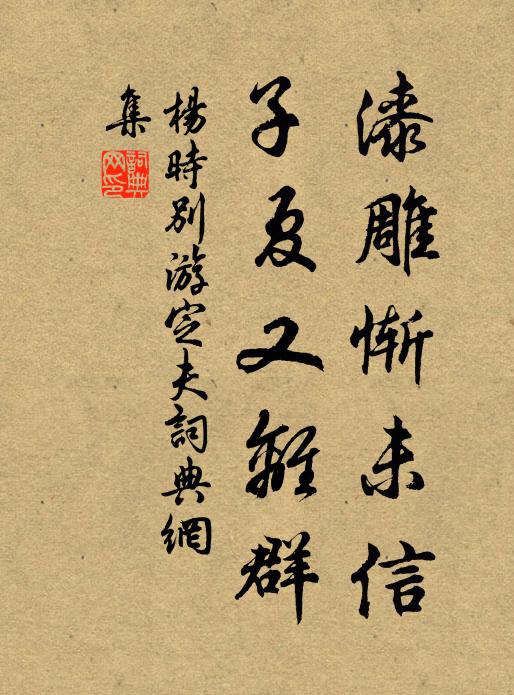 漆雕慚未信
子夏又離群
楊時別游定夫詞典網
集
詞典網印